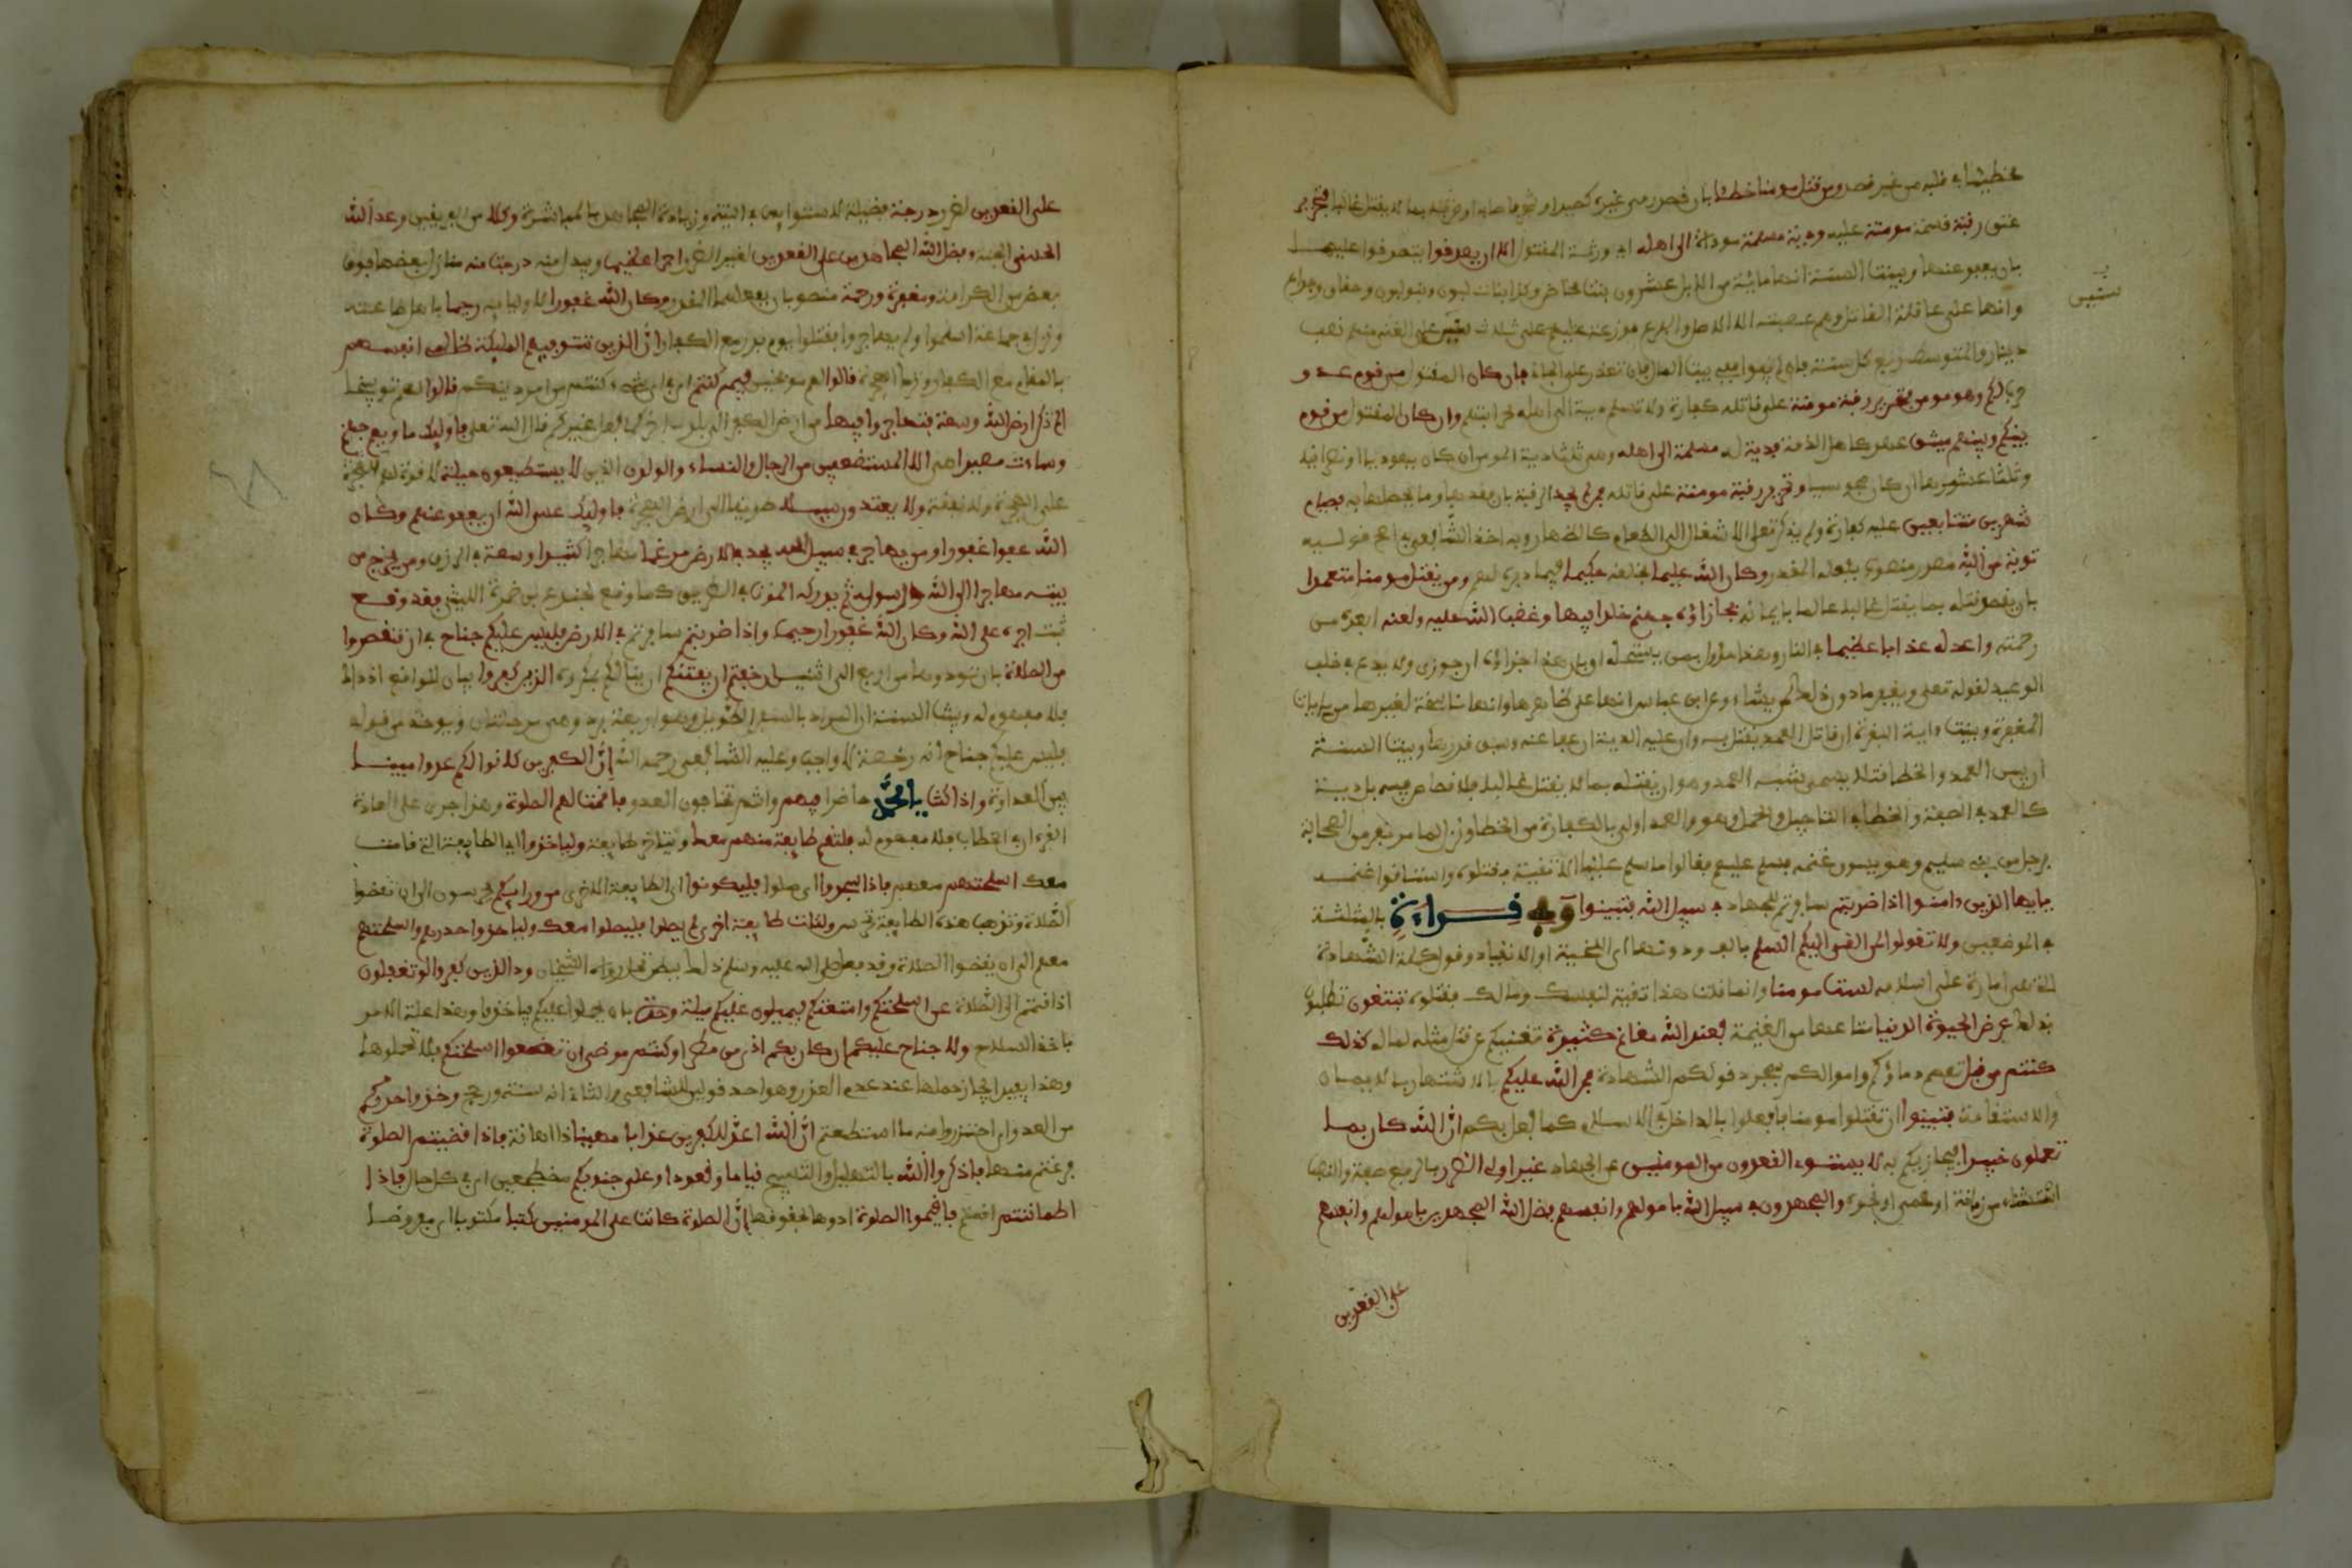 مخطئا في قتله من غير قصد ومن قتل مومنا خطئا بان قصد رمي غيره كصيد او شجرة فاصابه او ضربه بما لا يقتل غالبا فتحرير
عتق رقبة نسمة مومنة عليه ودية مسلمة موداة الى اهله اي ورثة المقتول الا ان يصدقوا يتصدقوا عليه بها
بان يعفو عنها وبينت السنة انها مائة من الابل عشرون بنت مخاض وكذا بنات لبون وبنو لبون وحقاق وجذاع
وانها على عاقلة القاتل وهم عصبته الا الاصل والفرع موزعة عليهم على ثلاث سنين على الغني منهم نصف
دينار والمتوسط ربع كل سنة فان لم يفوا فمن بيت المال فان تعذر فعلى الجاني فان كان المقتول من قوم عدو
حرب لكم وهو مومن فتحرير رقبة مومنة على قاتله كفارة ولا تسلم دية الى اهله لحرابتهم وان كان المقتول من قوم
بينكم وبينهم ميثق عهد كاهل الذمة فدية له مسلمة الى اهله وهي ثلث دية المومن ان كان يهوديا او نصرانيا
وثلثا عشرها ان كان مجوسيا وتحرير رقبة مومنة على قاتله فمن لم يجد الرقبة بان فقدها وما يحصلها به فصيام
شهرين متتابعين عليه كفارة ولم يذكر تعلى الانتقال الى الطعام كالظهار وبه اخذ الشافعي في اصح قوليه
توبة من الله مصدر منصوب بفعله المقدر وكان الله عليما بخلقه حكيما فيما دبره لهم ومن يقتل مومنا متعمدا
بان يقصد قتله بما يقتل غالبا عالما بايمانه فجزاؤه جهنم خلدا فيها وغضب الله عليه ولعنه ابعده من
رحمته واعد له عذابا عظيما في النار وهذا مؤول بمن يستحله او بان هذا جزاؤه ان جوزي ولا بدع في خلف
الوعيد لقوله تعلى ويغفر ما دون ذلك لمن يشاء وعن ابن عباس انها على ظاهرها وانها ناسخة لغيرها من ءايات
المغفرة وبينت ءاية البقرة ان قاتل العمد يقتل به وان عليه الدية ان عفي عنه وسبق قدرها وبينت السنة
ان بين العمد والخطا قتلا يسمى شبه العمد وهو ان يقتله بما لا يقتل غالبا فلا قصاص فيه بل دية
كالعمد في الصفة والخطا في التاجيل والحمل وهو والعمد اولى بالكفارة من الخطا ونزل لما مر نفر من الصحابة
برجل من بني سليم وهو يسوق غنما فسلم عليهم فقالوا ما سلم علينا الا تقية فقتلوه واستاقوا غنمه
يايها الذين ءامنوا اذا ضربتم سافرتم للجهاد في سبيل الله فتبينوا وفي قراءة بالمثلثة
في الموضعين ولا تقولوا لمن القى اليكم السلم بالف ودونها اي التحية او الانقياد وقول كلمة الشهادة
التي هي امارة على اسلامه لست مومنا وانما قلت هذا تقية لنفسك ومالك فتقتلوه تبتغون تطلبوا
بذلك عرض الحيوة الدنيا متاعها من الغنيمة فعند الله مغانم كثيرة تغنيكم عن قتل مثله لماله كذلك
كنتم من قبل تعصم دماؤكم واموالكم بمجرد قولكم الشهادة فمن الله عليكم بالاشتهار بالايمان
والاستقامة فتبينوا ان تقتلوا مومنا فافعلوا بالداخل في الاسلام كما فعل بكم ان الله كان بما
تعملون خبيرا فيجازيكم به لا يستوي القعدون من المومنين عن الجهاد غير اولي الضرر بالرفع صفة والنصب
استثناء من زمانة او عمى او نحوه والمجهدون في سبيل الله بامولهم وانفسهم فضل الله المجهدين بامولهم وانفسهم
على القعدين
ستين
على القعدين لضرر درجة فضيلة لاستوائهما في النية وزيادة المجاهد بالمباشرة وكلا من الفريقين وعد الله
الحسنى الجنة وفضل الله المجاهدين على القعدين لغير الضرر اجرا عظيما ويبدل منه درجت منه منازل بعضها فوق
بعض من الكرامة ومغفرة ورحمة منصوبان بفعلهما المقدر وكان الله غفورا لاوليائه رحيما باهل طاعته
ونزل في جماعة اسلموا ولم يهاجروا فقتلوا يوم بدر مع الكفار ان الذين تتوفيهم المليكة ظالمي انفسهم
بالمقام مع الكفار وترك الهجرة قالوا لهم موبخين فيم كنتم اي في اي شيء كنتم من امر دينكم قالوا لهم توبيخا
الم تكن ارض الله وسعة فتهاجروا فيها من ارض الكفر الى بلد اخر كما فعل غيركم قال الله تعلى فاوليك ماويهم جهنم
وساءت مصيرا هي الا المستضعفين من الرجال والنساء والولدن الذين لا يستطيعون حيلة لا قوة لهم
على الهجرة ولا نفقة ولا يهتدون سبيلا طريقا الى ارض الهجرة فاوليك عسى الله ان يعفو عنهم وكان
الله عفوا غفورا ومن يهاجر في سبيل الله يجد في الارض مرغما مهاجرا كثيرا وسعة في الرزق ومن يخرج من
بيته مهاجرا الى الله ورسوله ثم يدركه الموت في الطريق كما وقع لجندع بن ضمرة الليثي فقد وقع
ثبت اجره على الله وكان الله غفورا رحيما واذا ضربتم سافرتم في الارض فليس عليكم جناح في ان تقصروا
من الصلاة بان تردوها من اربع الى اثنتين ان خفتم ان يفتنكم ان ينالكم بمكروه الذين كفروا بيان للواقع اذ ذاك
فلا مفهوم له وبينت السنة ان المراد بالسفر الطويل وهو اربعة برد وهي مرحلتان ويوخذ من قوله
فليس عليكم جناح انه رخصة لا واجب وعليه الشافعي رحمه الله ان الكفرين كانوا لكم عدوا مبينا
بين العداوة واذا كنت يا محمد حاضرا فيهم وانتم تخافون العدو فاقمت لهم الصلوة وهذا جري على عادة
القرءان في الخطاب فلا مفهوم له فلتقم طايفة منهم معك وتتاخر طايفة ولياخذوا اي الطايفة التي قامت
معك اسلحتهم معهم فاذا سجدوا اي صلوا فليكونوا اي الطايفة الاخرى من ورائكم يحرسون الى ان تقضوا
الصلاة وتذهب هذه الطايفة تحرس ولتات طايفة اخرى لم يصلوا فليصلوا معك ولياخذوا حذرهم واسلحتهم
معهم الى ان يقضوا الصلاة وقد فعل صلى الله عليه وسلم ذلك ببطن نخل رواه الشيخان ود الذين كفروا لو تغفلون
اذا قمتم الى الصلاة عن اسلحتكم وامتعتكم فيميلون عليكم ميلة وحدة بان يحملوا عليكم فياخذوكم وهذا علة الامر
باخذ السلاح ولا جناح عليكم ان كان بكم اذى من مطر او كنتم مرضى ان تضعوا اسلحتكم فلا تحملوها
وهذا يفيد ايجاب حملها عند عدم العذر وهو احد قولين للشافعي والثاني انه سنة ورجح وخذوا حذركم
من العدو اي احترزوا منه ما استطعتم ان الله اعد للكفرين عذابا مهينا ذا اهانة فاذا قضيتم الصلوة
فرغتم منها فاذكروا الله بالتهليل والتسبيح قياما وقعودا وعلى جنوبكم مضطجعين اي في كل حال فاذا
اطماننتم امنتم فاقيموا الصلوة ادوها بحقوقها ان الصلوة كانت على المومنين كتبا مكتوبا اي مفروضا